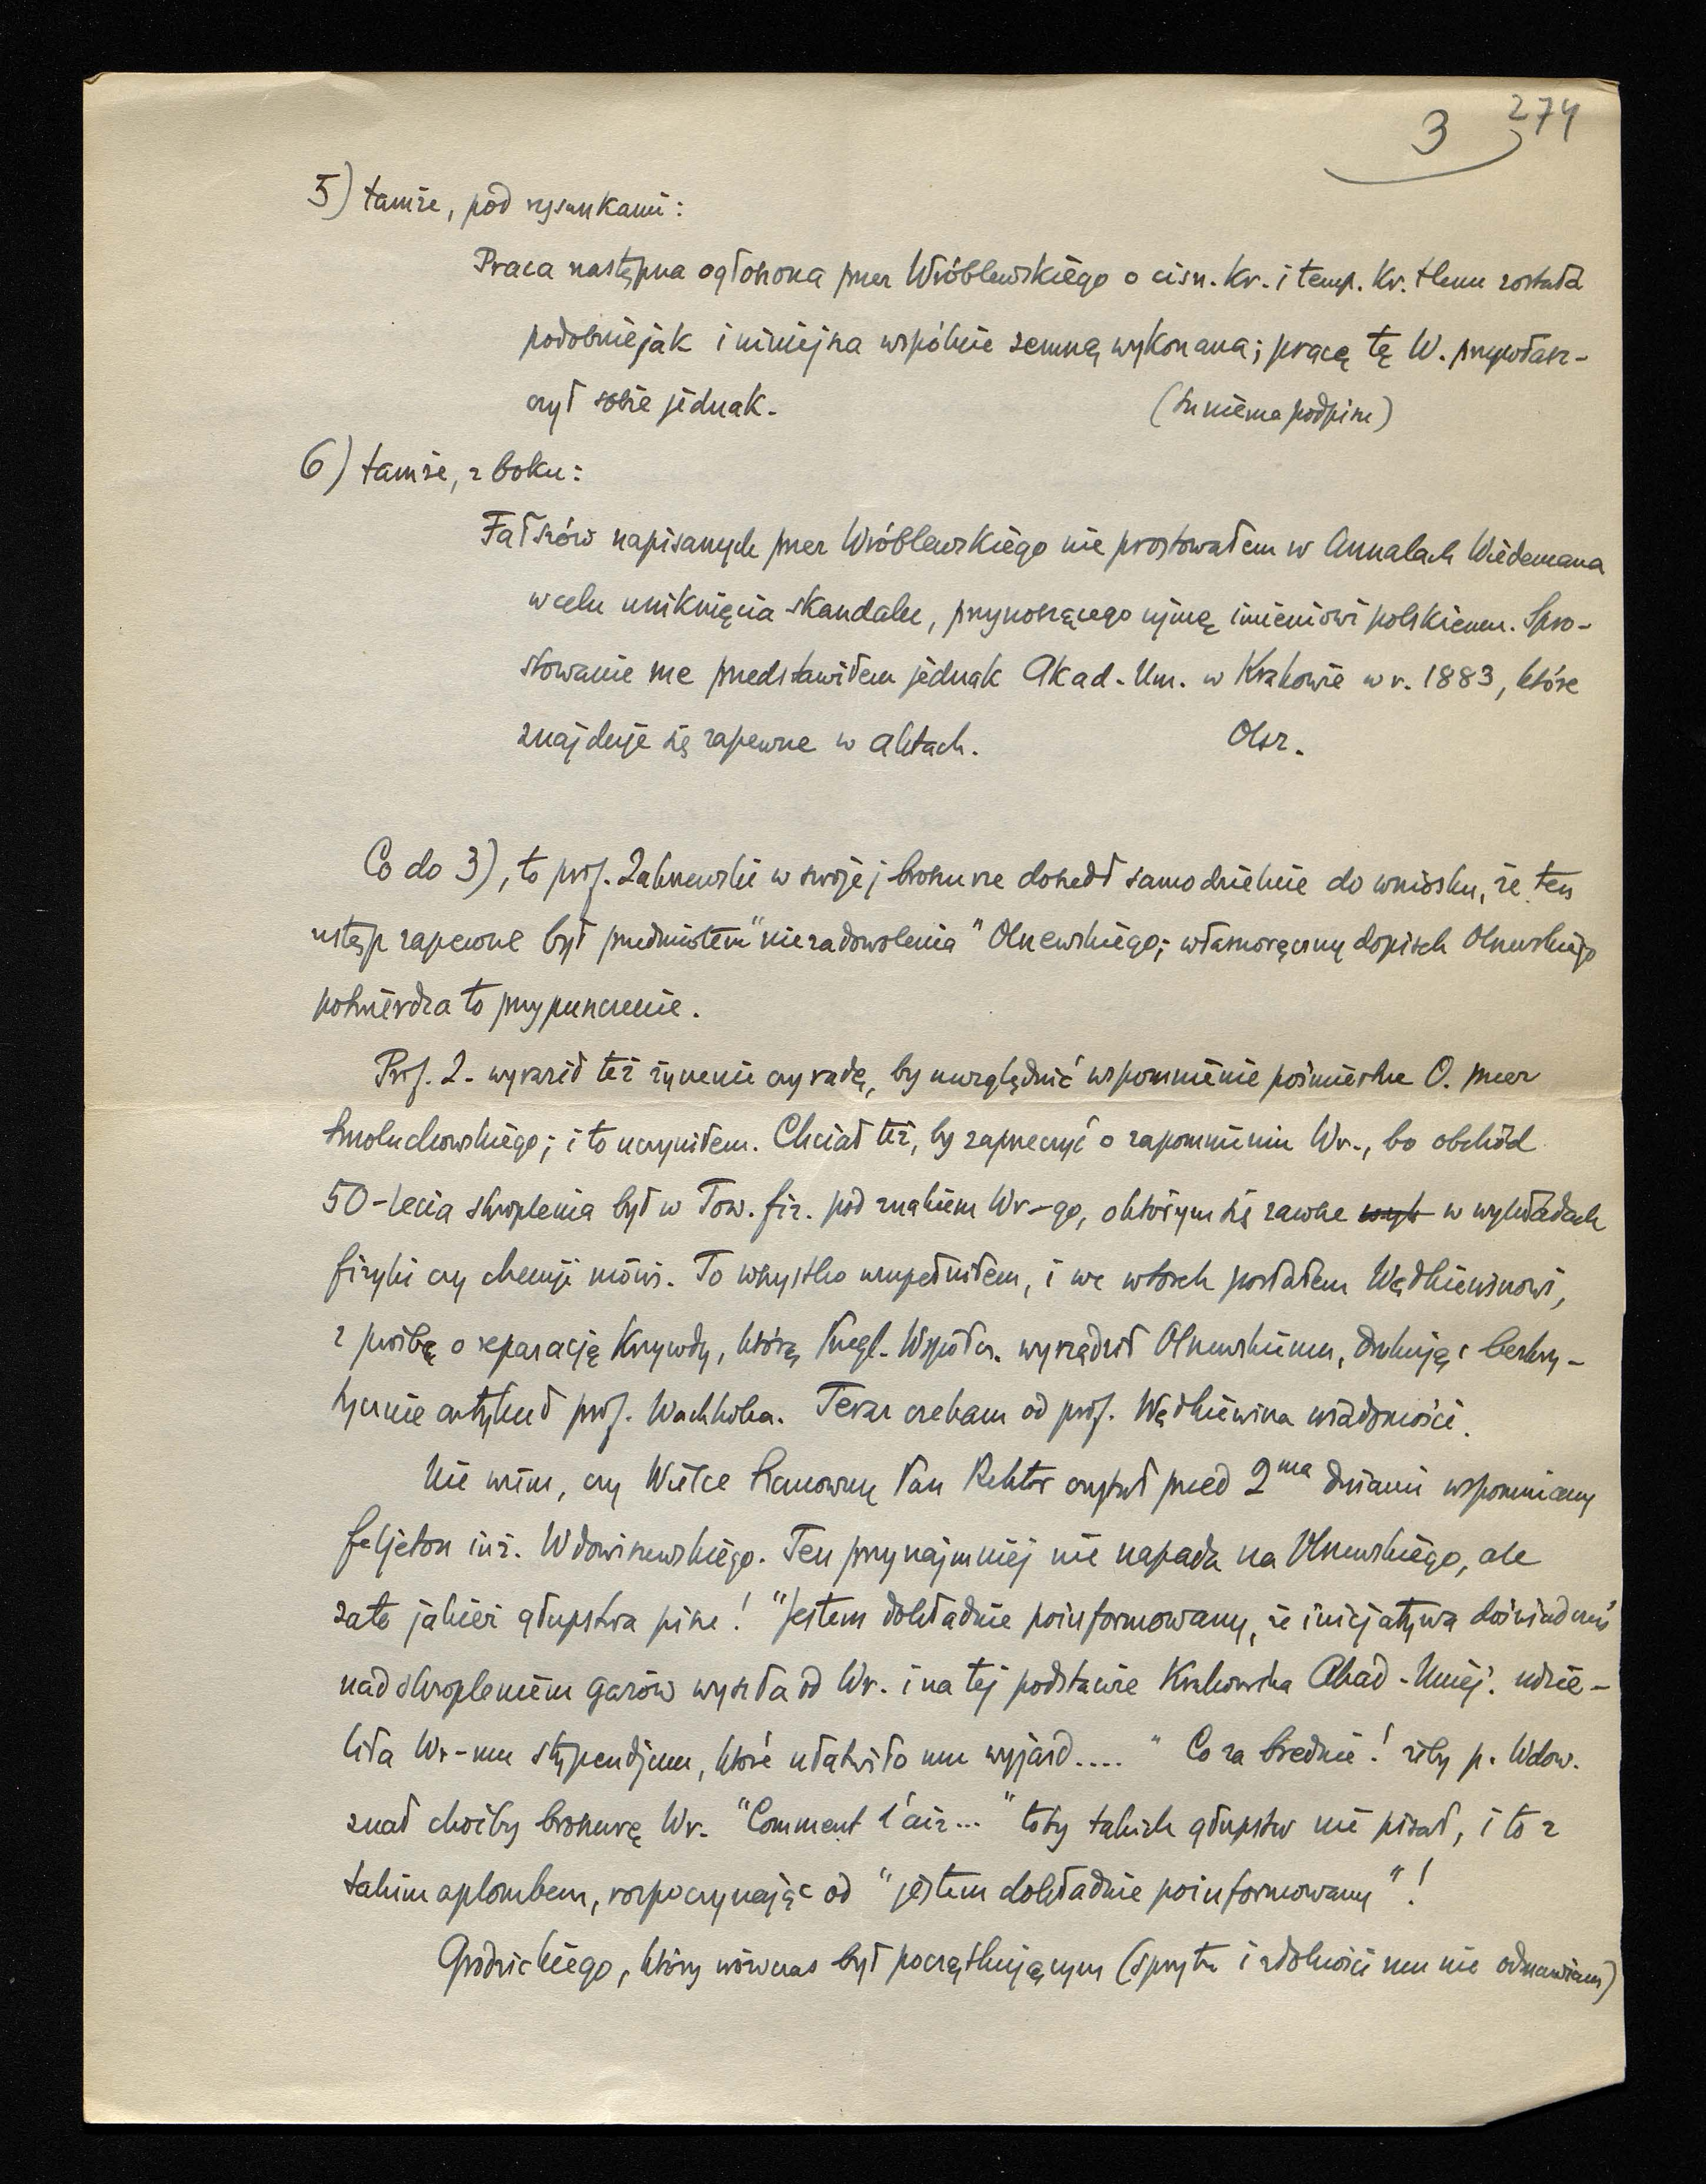 3 274
5) tamże, pod rysunkami:
Praca następna ogłoszona przez Wróblewskiego o ciśn. kr. i temp. kr. tlenu została
podobnie jak i niniejsza wspólnie zemną wykonana; pracę tę W. przywłasz-
czył sobie jednak. (tu niema podpisu)
6) tamże, z boku:
Fałszów napisanych przez Wróblewskiego nie prostowałem w Annalach Wiedemana
w celu uniknięcia skandalu, przynoszącego ujmę imieniowi polskiemu. Spro-
stowanie me przedstawiłem jednak Akad. Um. w Krakowie w r. 1883, które
znajduje się zapewne w aktach. Olsz.
Co do 3), to prof. Zakrzewski w swojej broszurze doszedł samodzielnie do wniosku, że ten
ustęp zapewne był przedmiotem "niezadowolenia" Olszewskiego; własnoręczny dopisek Olszewskiego
potwierdza to przypuszczenie.
Prof. Z. wyraził też życzenie czy radę, by uwzględnić wspomnienie pośmiertne O. przez
Smoluchowskiego; i to uczyniłem. Chciał też, by zaprzeczyć o zapomnieniu Wr., bo obchód
50-lecia skroplenia był w Tow. fiz. pod znakiem Wr-go, o którym się zawsze w wykładach
fizyki czy chemji mówi. To wszystko uzupełniłem, i we wtorek posłałem Wędkiewiczowi,
z prośbą o reparację krzywdy, którą Przegl. Współcz. wyrządził Olszewskiemu, drukując bezkry-
tycznie artykuł prof. Wachholza. Teraz czekam od prof. Wędkiewicza wiadomości.
Nie wiem, czy Wielce Szanowny Pan Rektor czytał przed 2ma dniami wspomniany
feljeton inż. Wdowiszewskiego. Ten przynajmniej nie napada na Olszewskiego, ale
zato jakież głupstwa pisze! "Jestem dokładnie poinformowany, że inicjatywa doświadczeń
nad skropleniem gazów wyszła od Wr. i na tej podstawie Krakowska Akad. Umiej. udzie-
liła Wr-mu stypendjum, które ułatwiło mu wyjazd...." Co za brednie! żeby p. Wdow.
znał choćby broszurę Wr. "Comment l'air..." toby takich głupstw nie pisał, i to z
takim aplombem, rozpoczynając od "jestem dokładnie poinformowany"!
Grodzickiego, który wówczas był początkującym (sprytu i zdolności mu nie odmawiam)